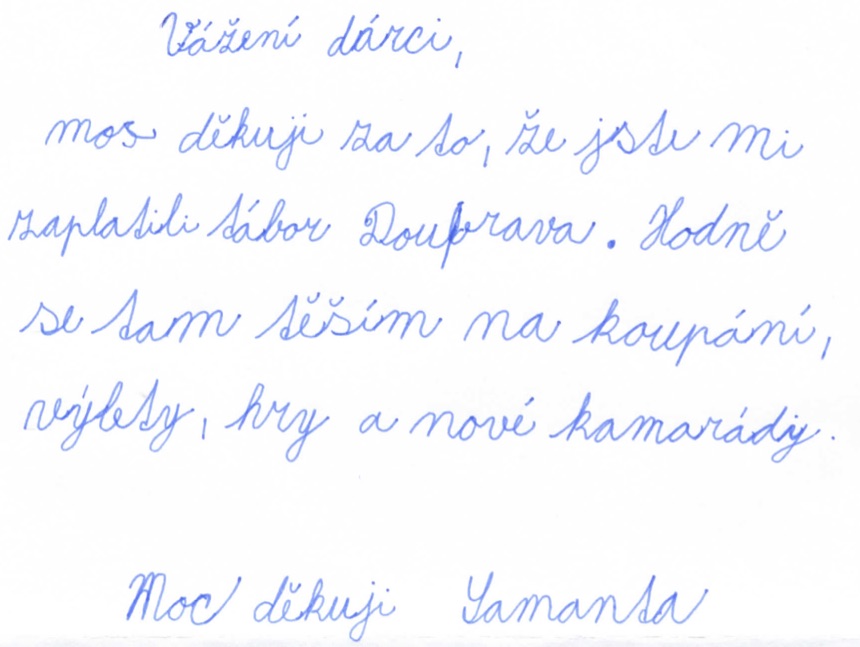 Vážení dárci,
moc děkuji za to, že jste mi
zaplatili tábor Doubrava. Hodně
se tam těším na koupání,
výlety, hry a nové kamarády.
Moc děkuji Samanta